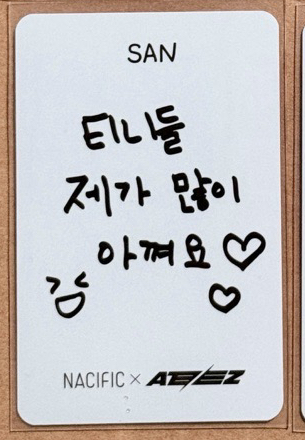 SAN
티니들
제가 많이
아껴요♡
♡
NACIFIC × ATEEZ